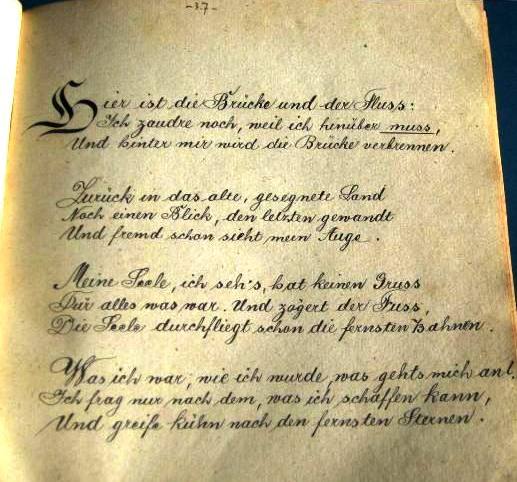 -37-
Hier ist die Brücke und der Fluss:
Ich zaudre noch, weil ich hinüber muss,
Und hinter mir wird die Brücke verbrennen.
Zurück in das alte, gesegnete Land
Noch einen Blick, den letzten gewandt
Und fremd schon sieht mein Auge.
Meine Seele, ich seh's, hat keinen Gruss
Für alles was war. Und zögert der Fuss,
Die Seele durchfliegt schon die fernsten Bahnen.
Was ich war, wie ich wurde, was gehts mich an!
Ich frag nur nach dem, was ich schaffen kann,
Und greife kühn nach den fernsten Sternen.